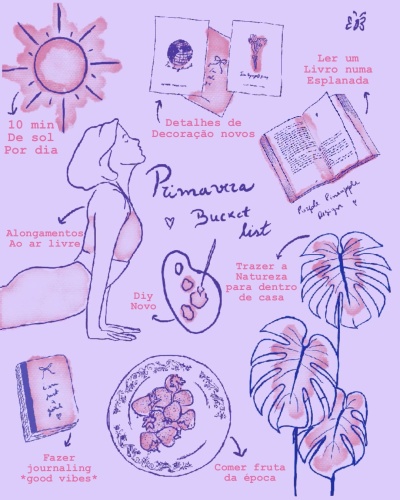 10 min
De sol
Por dia
Detalhes de
Decoração novos
Ler um
Livro numa
Esplanada
Primavera
Bucket
list
Purple Pineapple
Designs
Alongamentos
Ao ar livre
Diy
Novo
Trazer a
Natureza
para dentro
de casa
Fazer
journaling
*good vibes*
Comer fruta
da época